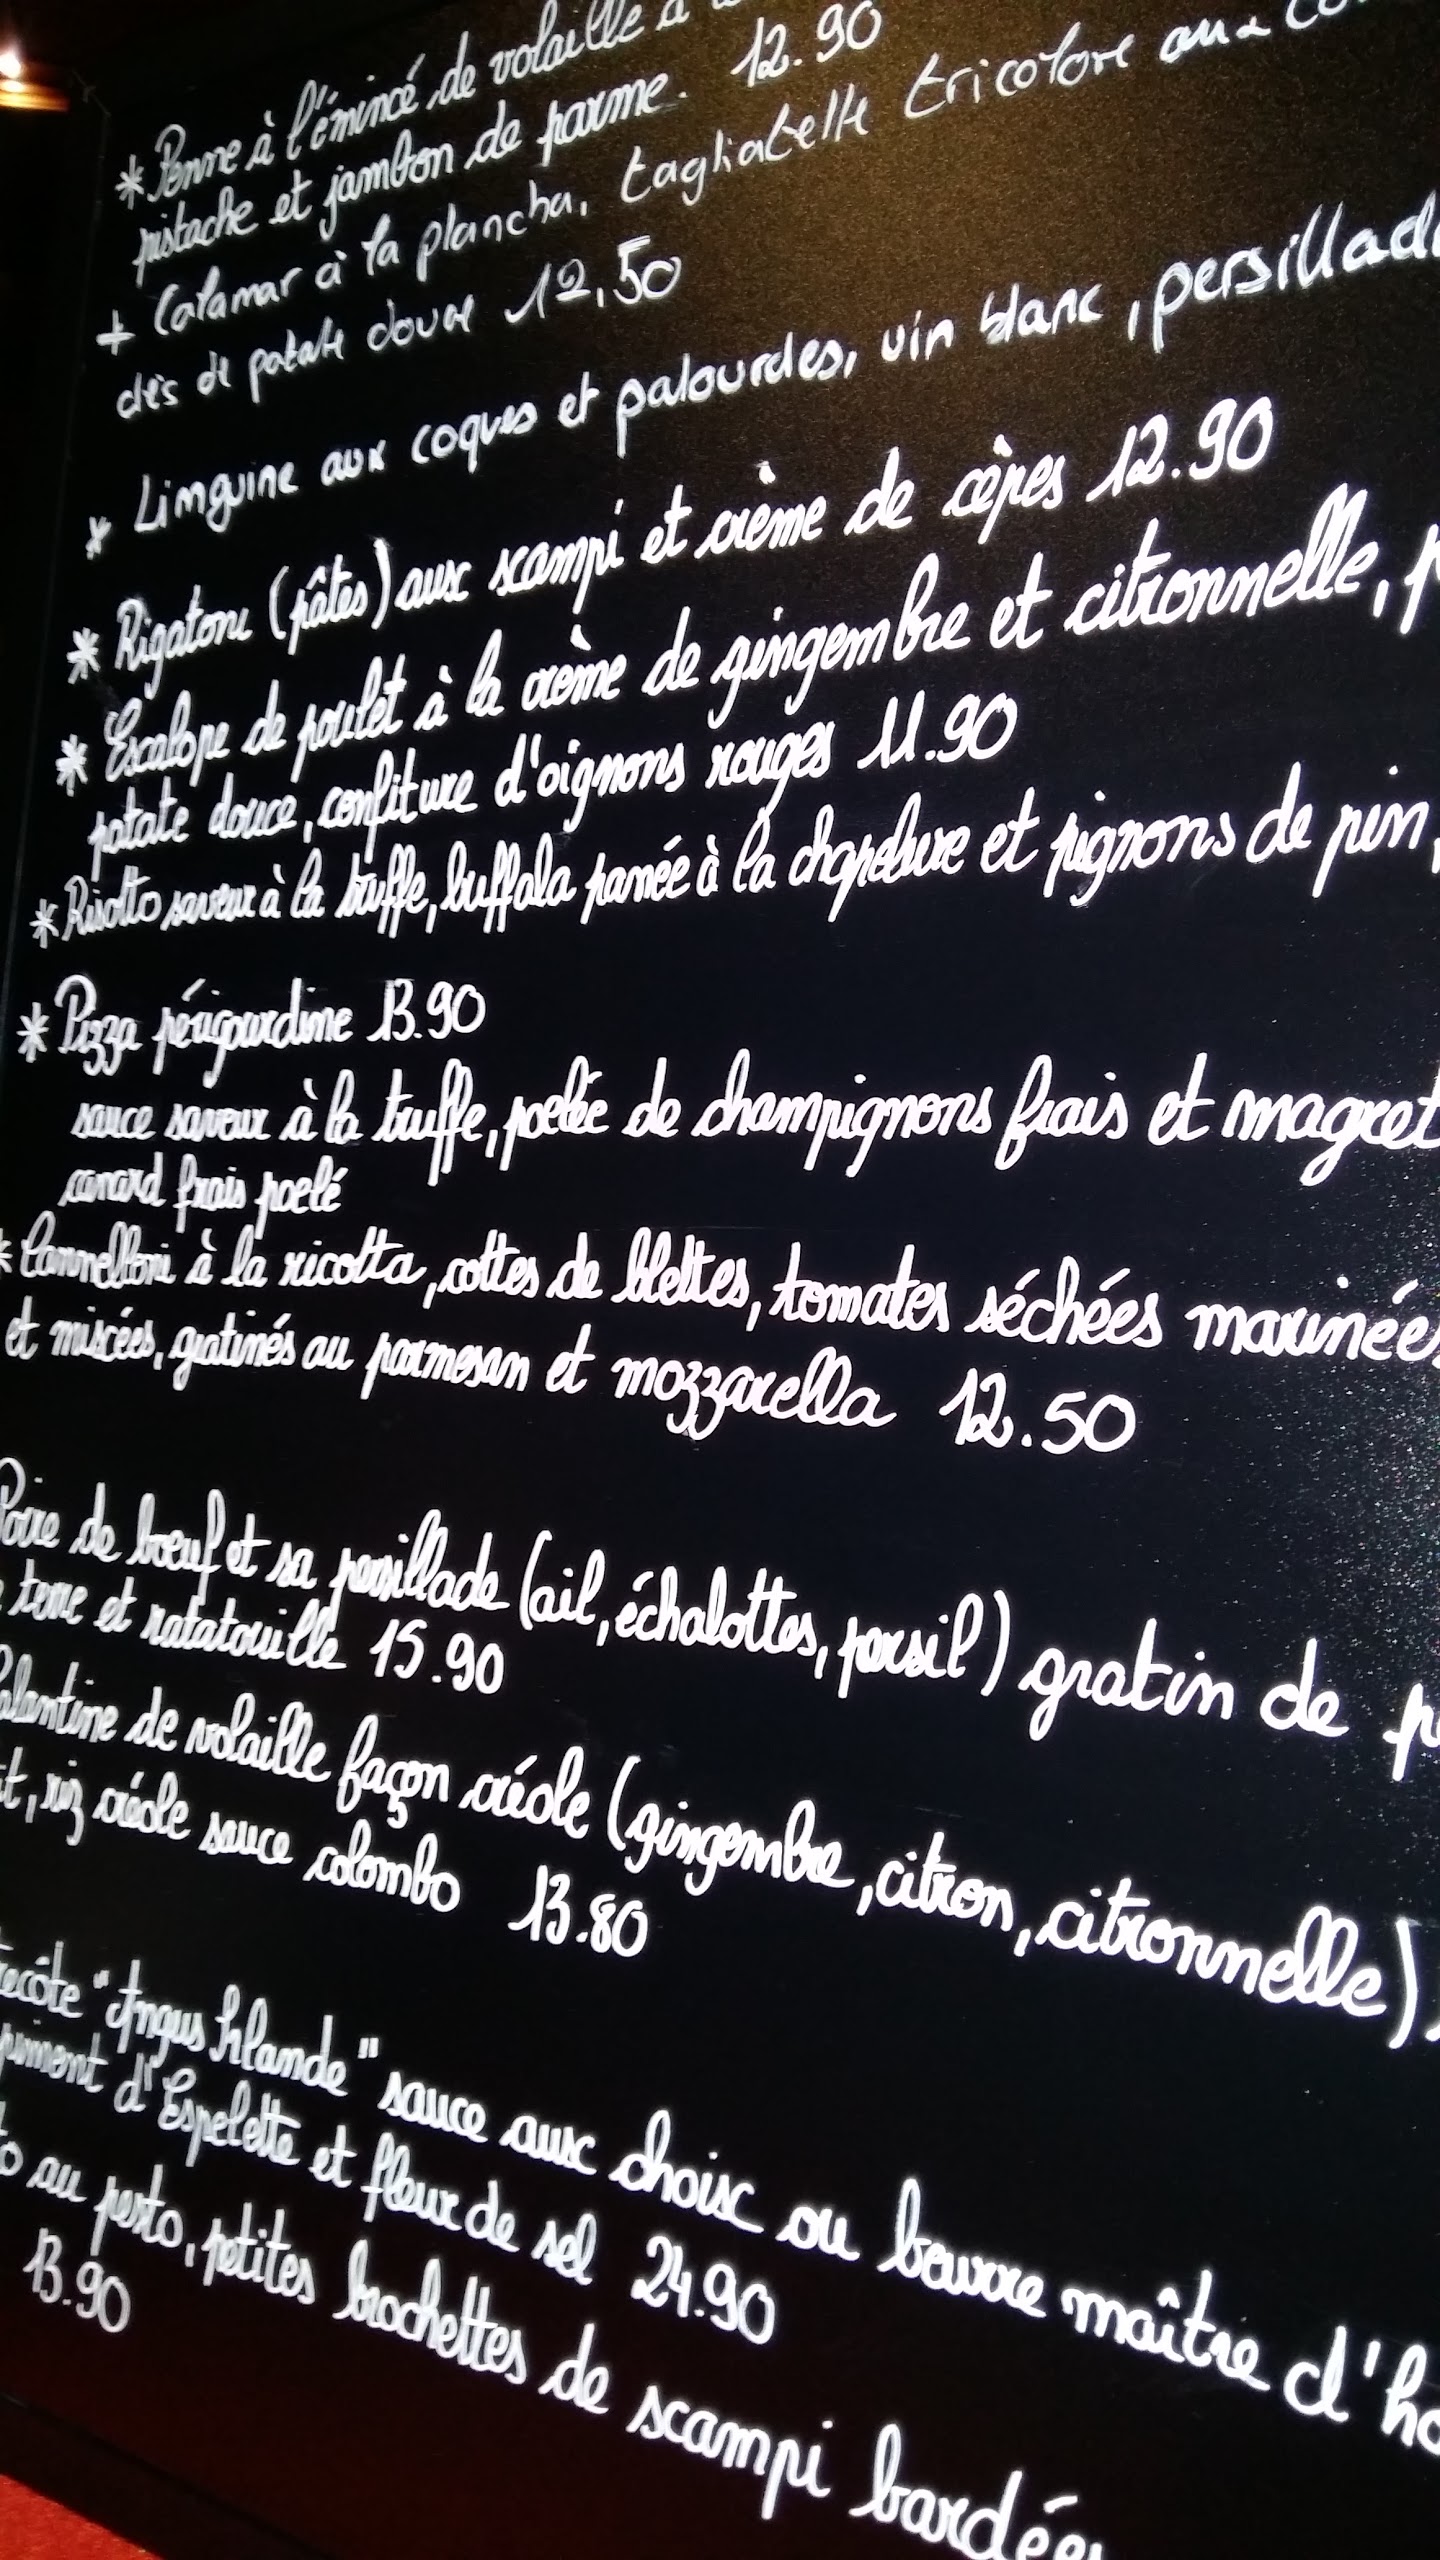 * Penne à l'émincé de volaille à
pistache et jambon de parme. 12.90
+ Calamar à la plancha, tagliatelle tricolore aux
dés de patate douce 12,50
* Linguine aux coques et palourdes, vin blanc, persillad
* Rigatoni (pâtes) aux scampi et crème de cèpes 12.90
* Escalope de poulet à la crème de gingembre et citronnelle, p
patate douce, confiture d'oignons rouges 11.90
* Risotto saveur à la truffe, buffala panée à la chapelure et pignons de pin,
* Pizza périgourdine 13.90
sauce saveur à la truffe, poelée de champignons frais et magret
canard frais poelé
* Cannelloni à la ricotta, cottes de blettes, tomates séchées marinées
et mixées, gratinés au parmesan et mozzarella 12.50
Poire de bœuf et sa persillade (ail, échalottes, persil) gratin de p
terre et ratatouille 15.90
alantine de volaille façon créole (gingembre, citron, citronnelle),
t, riz créole sauce colombo 13.80
recôte "Angus Irlande" sauce aux choix ou beurre maître d'ho
piment d'Espelette et fleur de sel 24.90
to au pesto, petites brochettes de scampi bardées
13.90